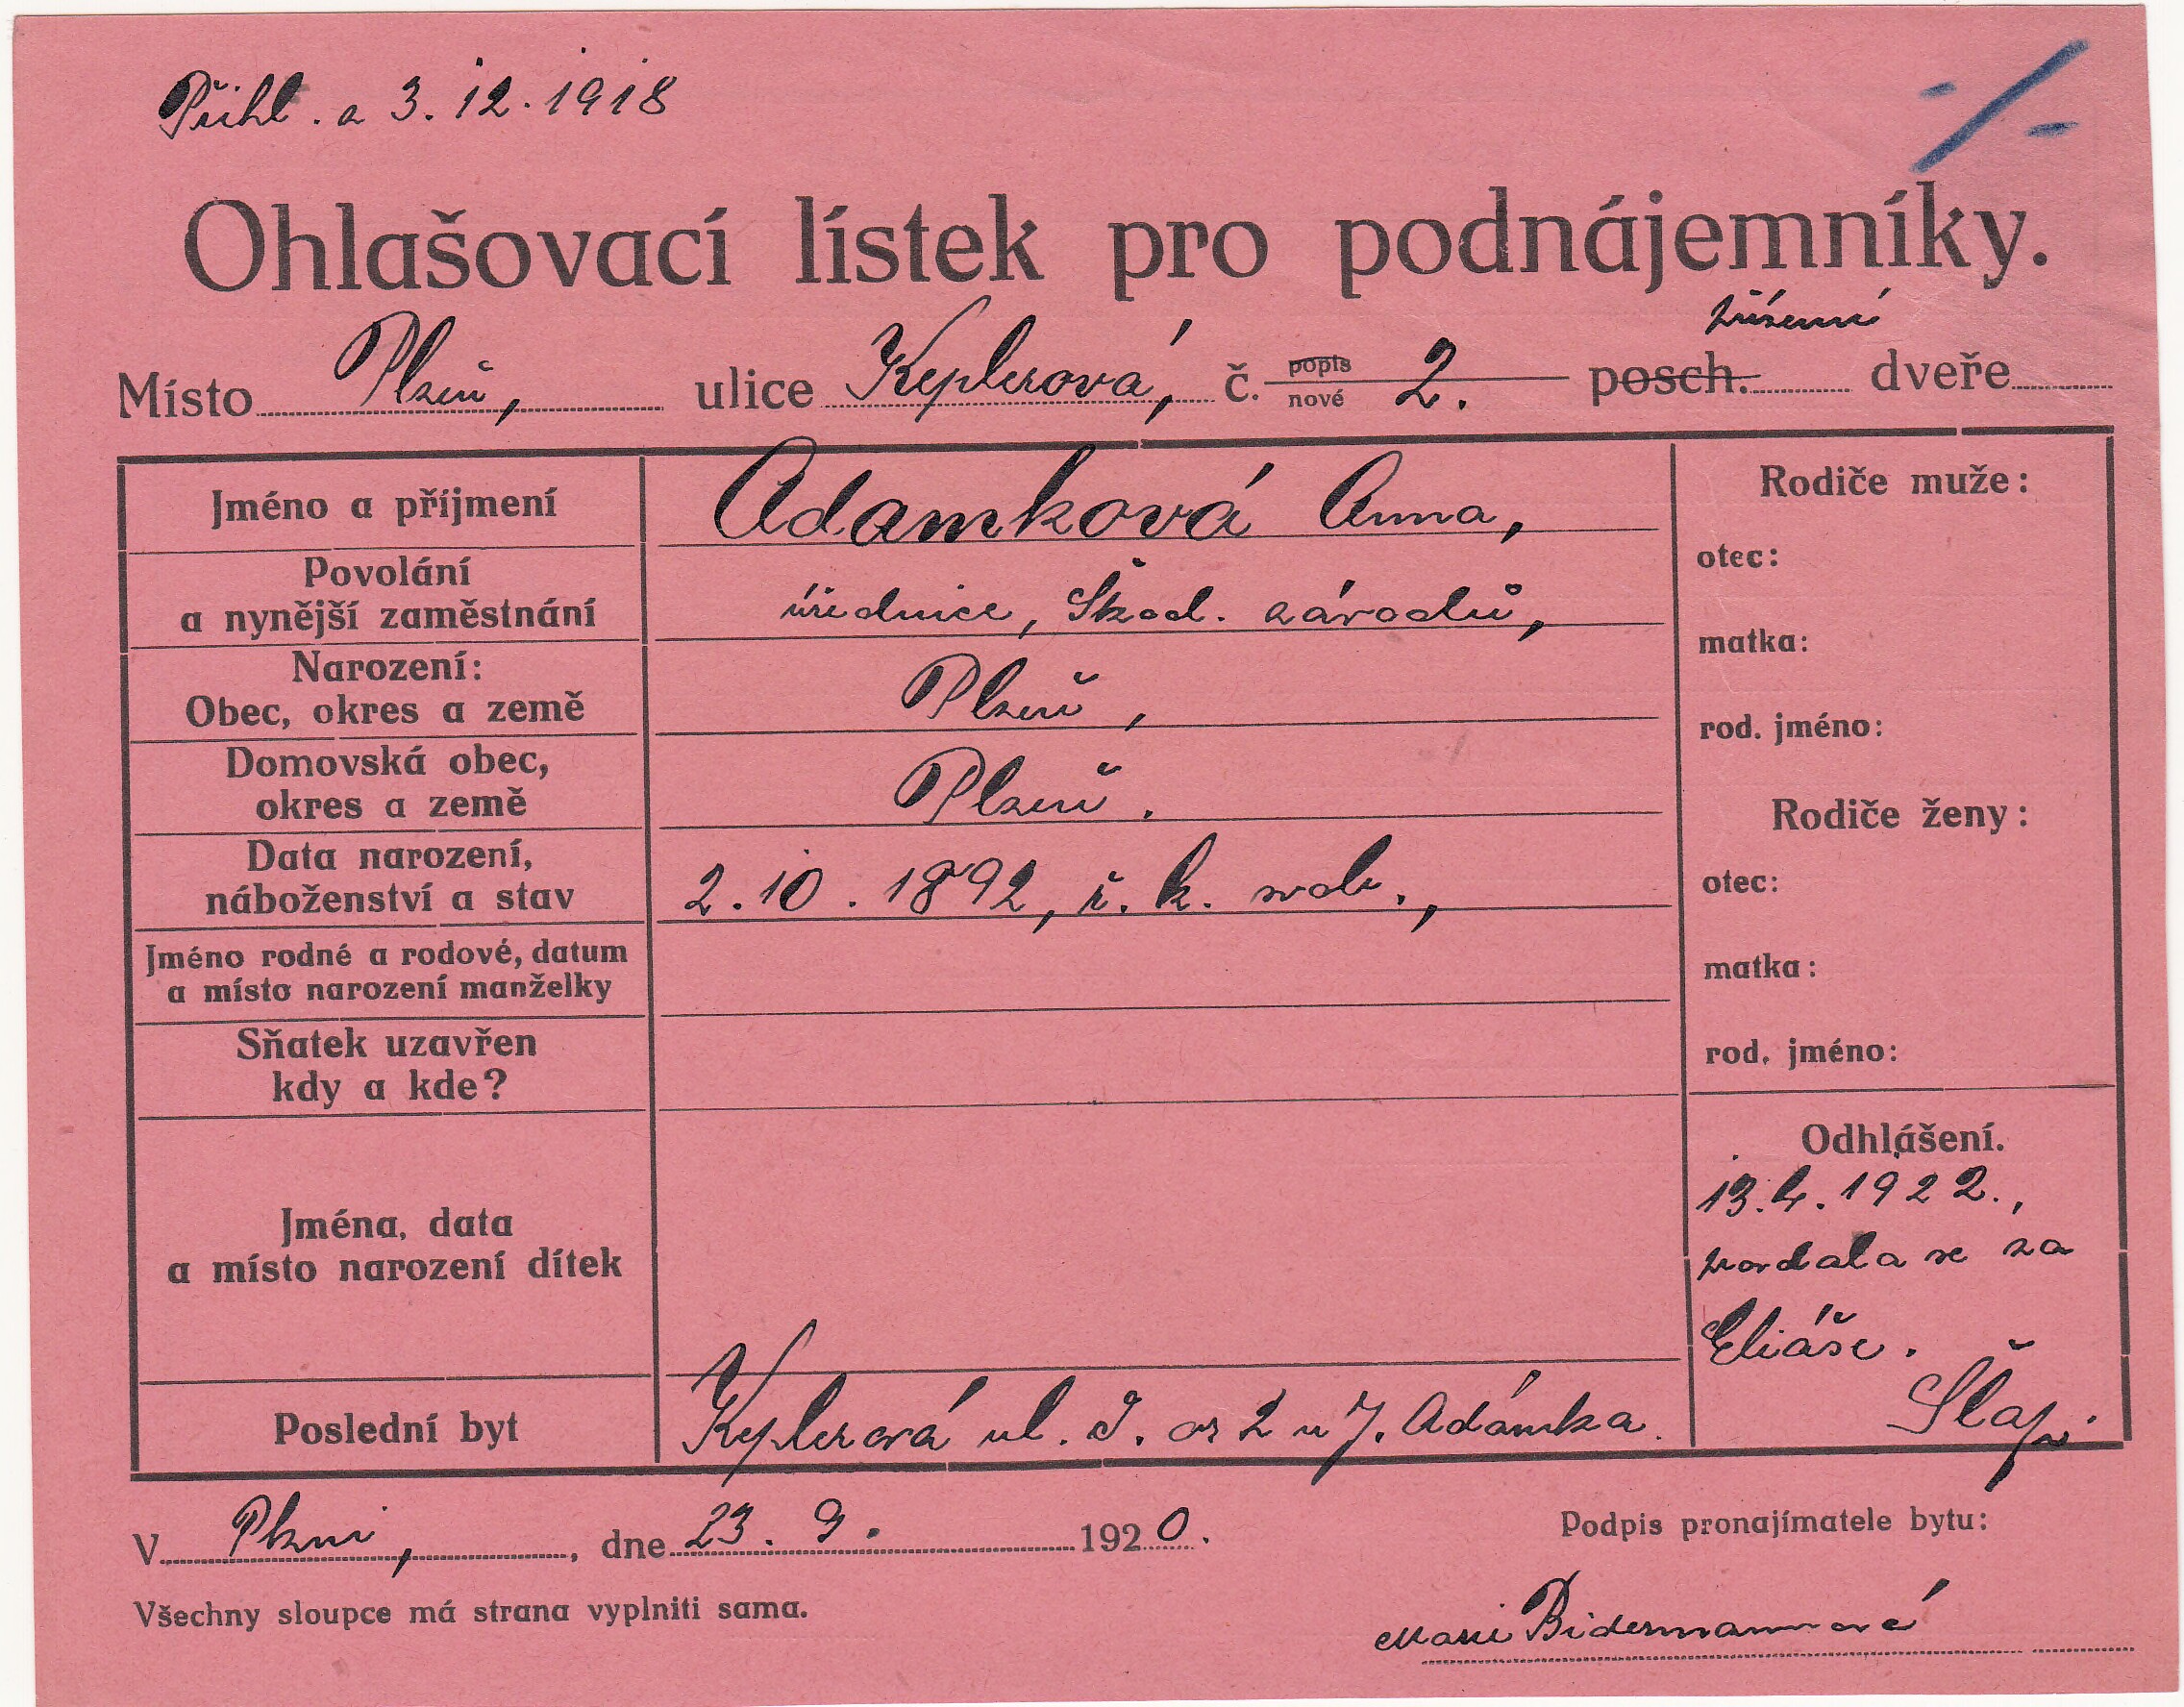 Přihl. a 3. 12. 1918
Ohlašovací lístek pro podnájemníky.
přízemí
Místo Plzeň, ulice Keplerová, č. popis nové 2. posch. dveře
Jméno a příjmení Adamková Anna,
Povolání
a nynější zaměstnání úřednice, Škod. závodů,
Narození:
Obec, okres a země Plzeň,
Domovská obec,
okres a země Plzeň.
Data narození,
náboženství a stav 2. 10. 1892, ř. k. svob.,
Jméno rodné a rodové, datum
a místo narození manželky
Sňatek uzavřen
kdy a kde?
Jména, data
a místo narození dítek
Poslední byt Keplerová ul. č. 2 u J. Adámka.
Rodiče muže:
otec:
matka:
rod. jméno:
Rodiče ženy:
otec:
matka:
rod. jméno:
Odhlášení.
13. 4. 1922.,
provdala se za
Eliáše.
V Plzni, dne 23. 9. 1920.
Všechny sloupce má strana vyplniti sama.
Podpis pronajímatele bytu:
Marie Bidermannová